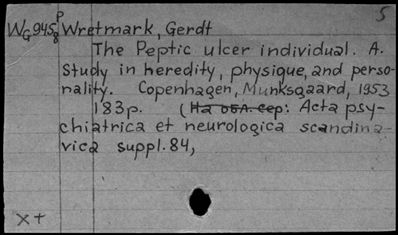 5
WG945p8 Wretmark, Gerdt
The Peptic ulcer individual. A.
Study in heredity, physique, and perso-
nality. Copenhagen, Munksgaard, 1953
183p. (На обл. сер: Acta psy-
chiatrica et neurologica scandina-
vica suppl. 84,
X+